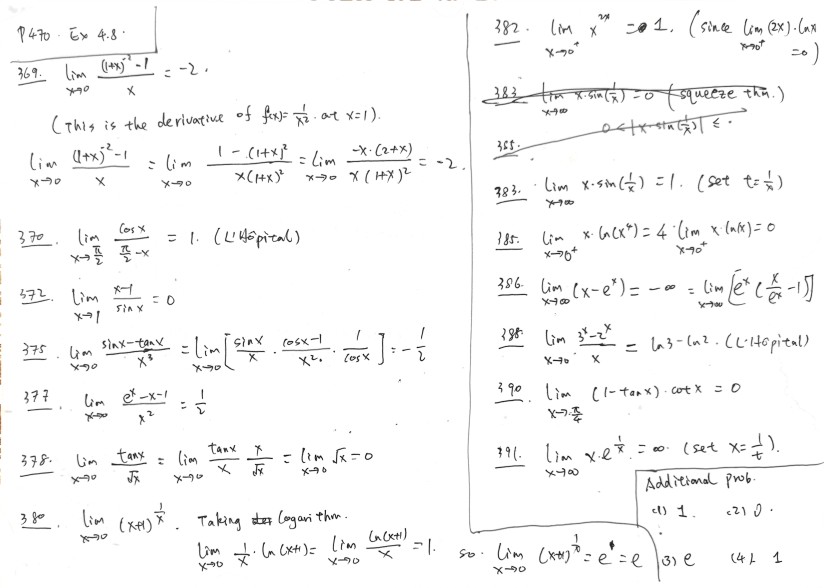 P470. Ex 4.8.
369. lim x→0 ((1+x)^-2 - 1)/x = -2.
(This is the derivative of f(x)= 1/x². at x=1).
lim x→0 ((1+x)^-2 - 1)/x = lim x→0 (1-(1+x)²)/(x(1+x)²) = lim x→0 (-x·(2+x))/(x(1+x)²) = -2.
370. lim x→π/2 cosx/(π/2 - x) = 1. (L'Hôpital)
372. lim x→1 (x-1)/sinx = 0
375. lim x→0 (sinx-tanx)/x³ = lim x→0 [sinx/x · (cosx-1)/x² · 1/cosx] = -1/2
377. lim x→∞ (e^x-x-1)/x² = 1/2
378. lim x→0 tanx/√x = lim x→0 tanx/x · x/√x = lim x→0 √x = 0
380. lim x→0 (x+1)^(1/x). Taking logarithm.
lim x→0 1/x · ln(x+1) = lim x→0 ln(x+1)/x = 1. so. lim x→0 (x+1)^(1/x) = e^1 = e
382. lim x→0⁺ x^(2x) = 1. (since lim x→0⁺ (2x)·lnx
=0)
383 lim x→∞ x·sin(1/x) = 0 (squeeze thm.)
0 < |x·sin(1/x)| ≤ .
385.
383. lim x→∞ x·sin(1/x) = 1. (set t=1/x)
385. lim x→0⁺ x·ln(x⁴) = 4·lim x→0⁺ x·ln(x) = 0
386. lim x→∞ (x-e^x) = -∞ = lim x→∞ [e^x(x/e^x - 1)]
388. lim x→0 (3^x-2^x)/x = ln3-ln2. (L'Hôpital)
390. lim x→π/4 (1-tanx)·cotx = 0
391. lim x→∞ x·e^(1/x) = ∞. (set x=1/t).
Additional prob.
(1) 1. (2) 0.
(3) e (4). 1